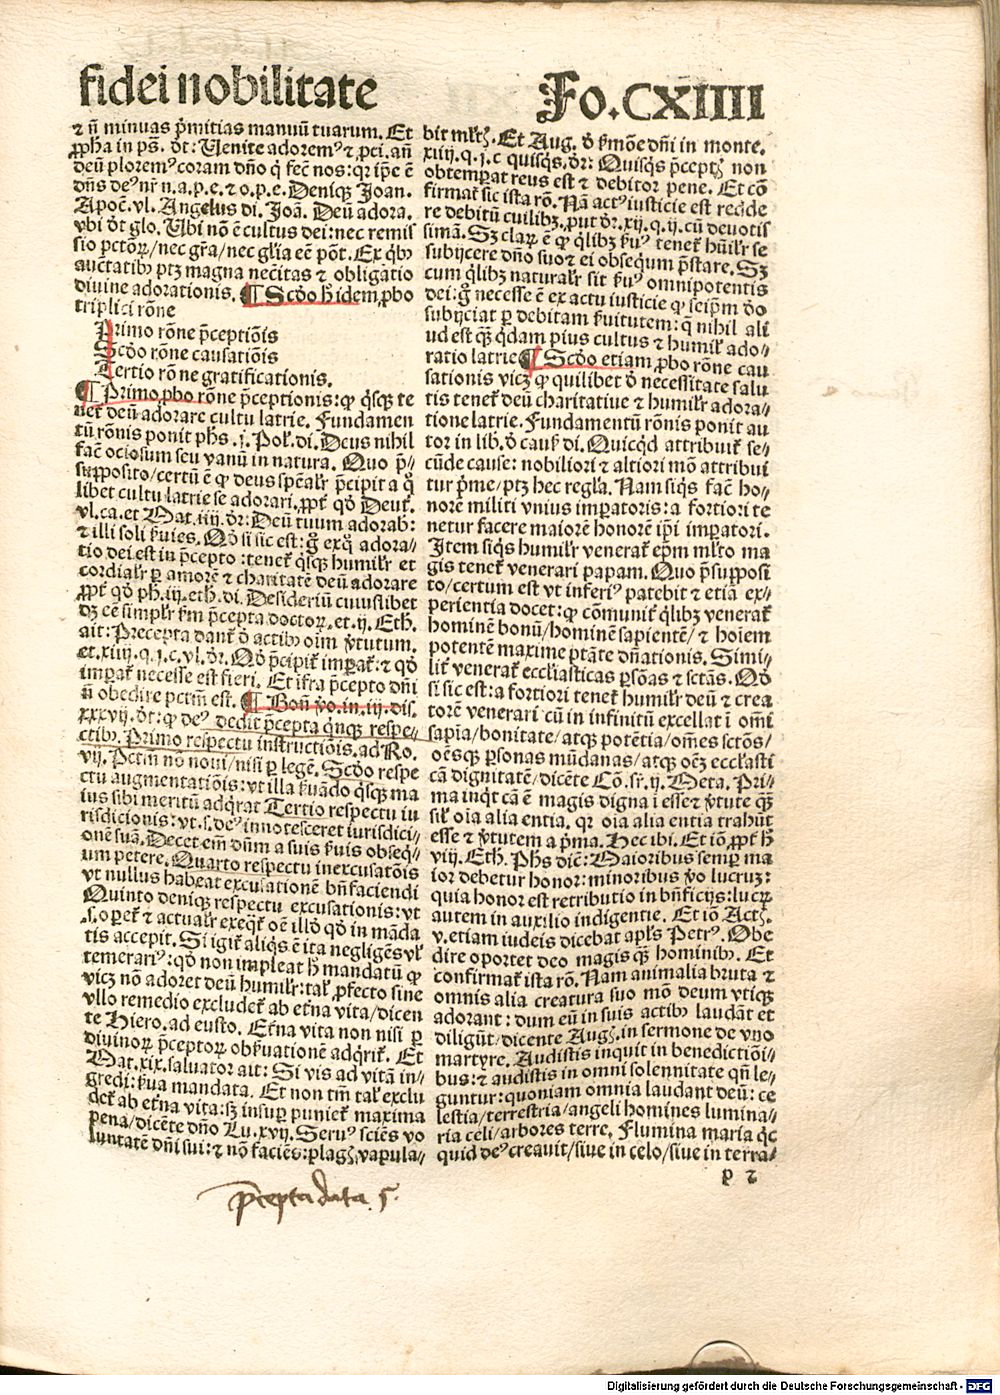 fidei nobilitate
Fo. CXIIII
⁊ ñ minuas p̃mitias manuũ tuarum. Et
ꝓpħa in ps̃. ðt: Uenite adorem⁹ ⁊ ꝓci. añ
deũ plorem⁹ coram dño q̇ fec̃ nos: qr ip̃e ẽ
dñs de⁹ nr̃ n. a. p. e. ⁊ o. p. e. Deniqꝫ Joan.
Apoc̃. vl. Angelus di. Joã. Deũ adora.
vbi ðt glo. Ubi nõ ẽ cultus dei: nec remis
sio pctõꝝ/ nec gr̃a/ nec gl̃ia eẽ põt. Ex q̇bꝰ
auctatibꝰ ptꝫ magna nec̃itas ⁊ obligatio
diuine adorationis. ¶ Scðo h̃ idem ꝓbo
triplici rõne
Primo rõne p̃ceptiõis
Scðo rõne causatiõis
Tertio rõne gratificationis.
¶ Primo ꝓbo rõne p̃ceptionis: qꝫ q̇sqꝫ te
net̃ deũ adorare cultu latrie. Fundamen
tũ rõnis ponit pħs .j. Pol̃. di. Deus nihil
fac̃ ociosum seu vanũ in natura. Quo p̃-
supposito/ certũ ẽ qꝫ deus spẽalr̃ p̃cipit a q̊
libet cultu latrie se adorari. ꝓpt̃ qð Deut̃.
vl. ca. et Mat. iiij. ðr: Deũ tuum adorab:
⁊ illi soli ẜuies. Qð si sic est: g̊ exq̊ adora-
tio dei est in p̃cepto: tenet̃ q̇sqꝫ humilr̃ et
cordialr̃ ꝑ amorẽ ⁊ charitatẽ deũ adorare
ꝓpt̃ qð pħ. iij. eth̃. di. Desideriũ cuiuslibet
dꝫ eẽ simplr̃ ẜm p̃cepta doctoꝝ. et. ij. Eth̃.
ait: Precepta dant̃ ð actibꝰ oĩm ꝟtutum.
et. xiiij. q. j. c. vl. ðr. Qð p̃cipit̃ imꝑat̃: ⁊ qð
imꝑat̃ necesse est fieri. Et ifra p̃cepto dñi
ñ obedire pctm̃ est. ¶ Boñ ꝟo. in. iij. dis.
xxxvij. ðt: qꝫ de⁹ dedit p̃cepta q̇nqꝫ respe-
ctibꝰ. Primo respectu instructiõis. ad Ro.
vij. Pctm̃ nõ noui/ nisi ꝑ legẽ. Scðo respe
ctu augmentatiõis: vt illa ẜuãdo q̇sqꝫ ma
ius sibi meritũ adq̇rat Tertio respectu iu
risdicionis: vt. s. de⁹ innotesceret iurisdici-
onẽ suã. Decet em̃ dñm a suis ẜuis obseq̇-
um petere. Quarto respectu inexcusatõis
vt nullus habeat excusationẽ bñfaciendi
Quinto deniqꝫ respectu excusationis: vt
.s. oꝑet̃ ⁊ actualr̃ exeq̇t̃ oẽ illð qð in mãda
tis accepit. Si igit̃ aliq̇s ẽ ita negligẽs vl̃
temerari⁹: qð non impleat h̃ mandatũ qꝫ
vicꝫ nõ adoret deũ humilr̃: tal̃ ꝓfecto sine
vllo remedio excludet̃ ab et̃na vita/ dicen
te Hiero. ad eusto. Et̃na vita non nisi ꝑ
diuinoꝝ p̃ceptoꝝ obẜuationẽ adq̇rit̃. Et
Mat. xix. saluator ait: Si vis ad vitã in-
gredi: ẜua mandata. Et non tm̃ tal̃ exclu
det̃ ab et̃na vita: sꝫ insuꝑ puniet̃ maxima
pena/ dicẽte dño Lu. xvij. Seru⁹ sciẽs vo
luntatẽ dñi sui: ⁊ nõ faciẽs: plagꝭ vapula-
bit ml̃tꝭ. Et Aug. ð ẜmõe dñi in monte.
xiiij. q. j. c quisq̇s. ðr: Quisq̇s p̃ceptꝭ non
obtemꝑat reus est ⁊ debitor pene. Et cõ
firmat̃ sic ista rõ. Nã act⁹ iusticie est redde
re debitũ cuilibꝫ. put ðr. xij. q. ij. cũ deuotis
simã. Sꝫ claꝝ ẽ qꝫ q̇libꝫ ẜu⁹ tenet̃ hũilr̃ se
subijcere dño suo ⁊ ei obseq̇um p̃stare. Sꝫ
cum q̇libꝫ naturalr̃ sit ẜu⁹ omnipotentis
dei: g̊ necesse ẽ ex actu iusticie qꝫ seip̃m ðo
subijciat ꝑ debitam ẜuitutem: q̃ nihil ali
ud est qꝫ q̇dam pius cultus ⁊ humil̃ ado-
ratio latrie ¶ Scðo etiam ꝓbo rõne cau
sationis vicꝫ qꝫ quilibet ð necessitate salu
tis tenet̃ deũ charitatiue ⁊ humilr̃ adora-
tione latrie. Fundamentũ rõnis ponit au
tor in lib. ð cauẜ di. Quicq̇d attribuit̃ se-
cũde cause: nobiliori ⁊ altiori mõ attribui
tur p̃me/ ptꝫ hec regl̃a. Nam siq̇s fac̃ ho-
norẽ militi vnius imꝑatoris: a fortiori te
netur facere maiorẽ honorẽ ip̃i imꝑatori.
Item siq̇s humilr̃ venerat̃ ep̃m ml̃to ma
gis tenet̃ venerari papam. Quo p̃supposi
to/ certum est vt inferi⁹ patebit ⁊ etiã ex-
perientia docet: qꝫ cõmunit̃ q̇libꝫ venerat̃
hominẽ bonũ/ hominẽ sapientẽ/ ⁊ hoiem
potentẽ maxime ptãte dñationis. Simi-
lit̃ venerat̃ ecclĩasticas ꝑsõas ⁊ sctãs. Qð
si sic est: a fortiori tenet̃ humilr̃ deũ ⁊ crea
torẽ venerari cũ in infinitũ excellat ĩ om̃i
sapĩa/ bonitate/ atqꝫ potẽtia/ om̃es sctõs/
oẽsqꝫ ꝑsonas mũdanas/ atqꝫ oẽꝫ ecclẽsti
cã dignitatẽ/ dicẽte Cõ. sr̃. ij. Meta. Pri-
ma inq̇t cã ẽ magis digna ĩ esse ⁊ ꝟtute qꝫ
sil̃ oĩa alia entia. qr oĩa alia entia trahũt
esse ⁊ ꝟtutem a p̃ma. Hec ibi. Et iõ ꝓpt̃ h̃
viij. Eth̃. Pħs dic̃: Maioribus semꝑ ma
ior debetur honor: minoribus ꝟo lucruꝫ:
quia honor est retributio in bñficijs: lucꝝ
autem in auxilio indigentie. Et iõ Actꝭ.
v. etiam iudeis dicebat apl̃s Petr⁹. Obe
dire oportet deo magis qꝫ hominibꝰ. Et
confirmat̃ ista rõ. Nam animalia bruta ⁊
omnis alia creatura suo mõ deum vtiqꝫ
adorant: dum eũ in suis actibꝰ laudãt et
diligũt/ dicente Augꝭ. in sermone de vno
martyre. Audistis inquit in benedictiõi-
bus: ⁊ audistis in omni solennitate qñ le-
guntur: quoniam omnia laudant deũ: ce
lestia/ terrestria/ angeli homines lumina-
ria celi/ arbores terre. Flumina maria q̇c
quid de⁹ creauit/ siue in celo/ siue in terra-
p 2
p̃cepta data. 5.
Digitalisierung gefördert durch die Deutsche Forschungsgemeinschaft - DFG